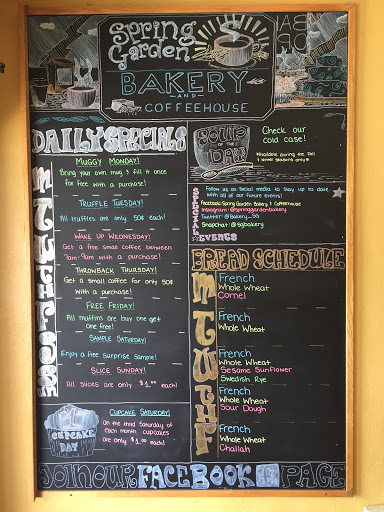 Spring
Garden
BAKERY
AND
COFFEEHOUSE
DAILY SPECIALS
Muggy Monday!
Bring your own mug & fill it once
for free with a purchase!
Truffle Tuesday!
All truffles are only 50¢ each!
Wake Up Wednesday!
Get a free small coffee between
7am-9am with a purchase!
Throwback Thursday!
Get a small coffee for only 50¢
with a purchase!
Free Friday!
All muffins are buy one get
one free!
Sample Saturday!
Enjoy a free Surprise Sample!
Slice Sunday!
All slices are only $1.00 each!
CUPCAKE
DAY
Cupcake Saturday!
On the third Saturday of
each month, cupcakes
are only $1.00 each!
SOUP
OF THE
DAY
Check our
cold case!
SPECIAL
EVENTS
Follow us on social media to stay up to date
with all of our future events!
Facebook: Spring Garden Bakery & Coffeehouse
Instagram: @springgardenbakery
Twitter: @Bakery_SG
Snapchat: @sgbakery
BREAD SCHEDULE
M
French
Whole Wheat
Corne!
T
French
Whole Wheat
W
French
Whole Wheat
Sesame Sunflower
Swedish Rye
TH
French
Whole Wheat
Sour Dough
F
French
Whole Wheat
Challah
JOIN OUR FACEBOOK PAGE